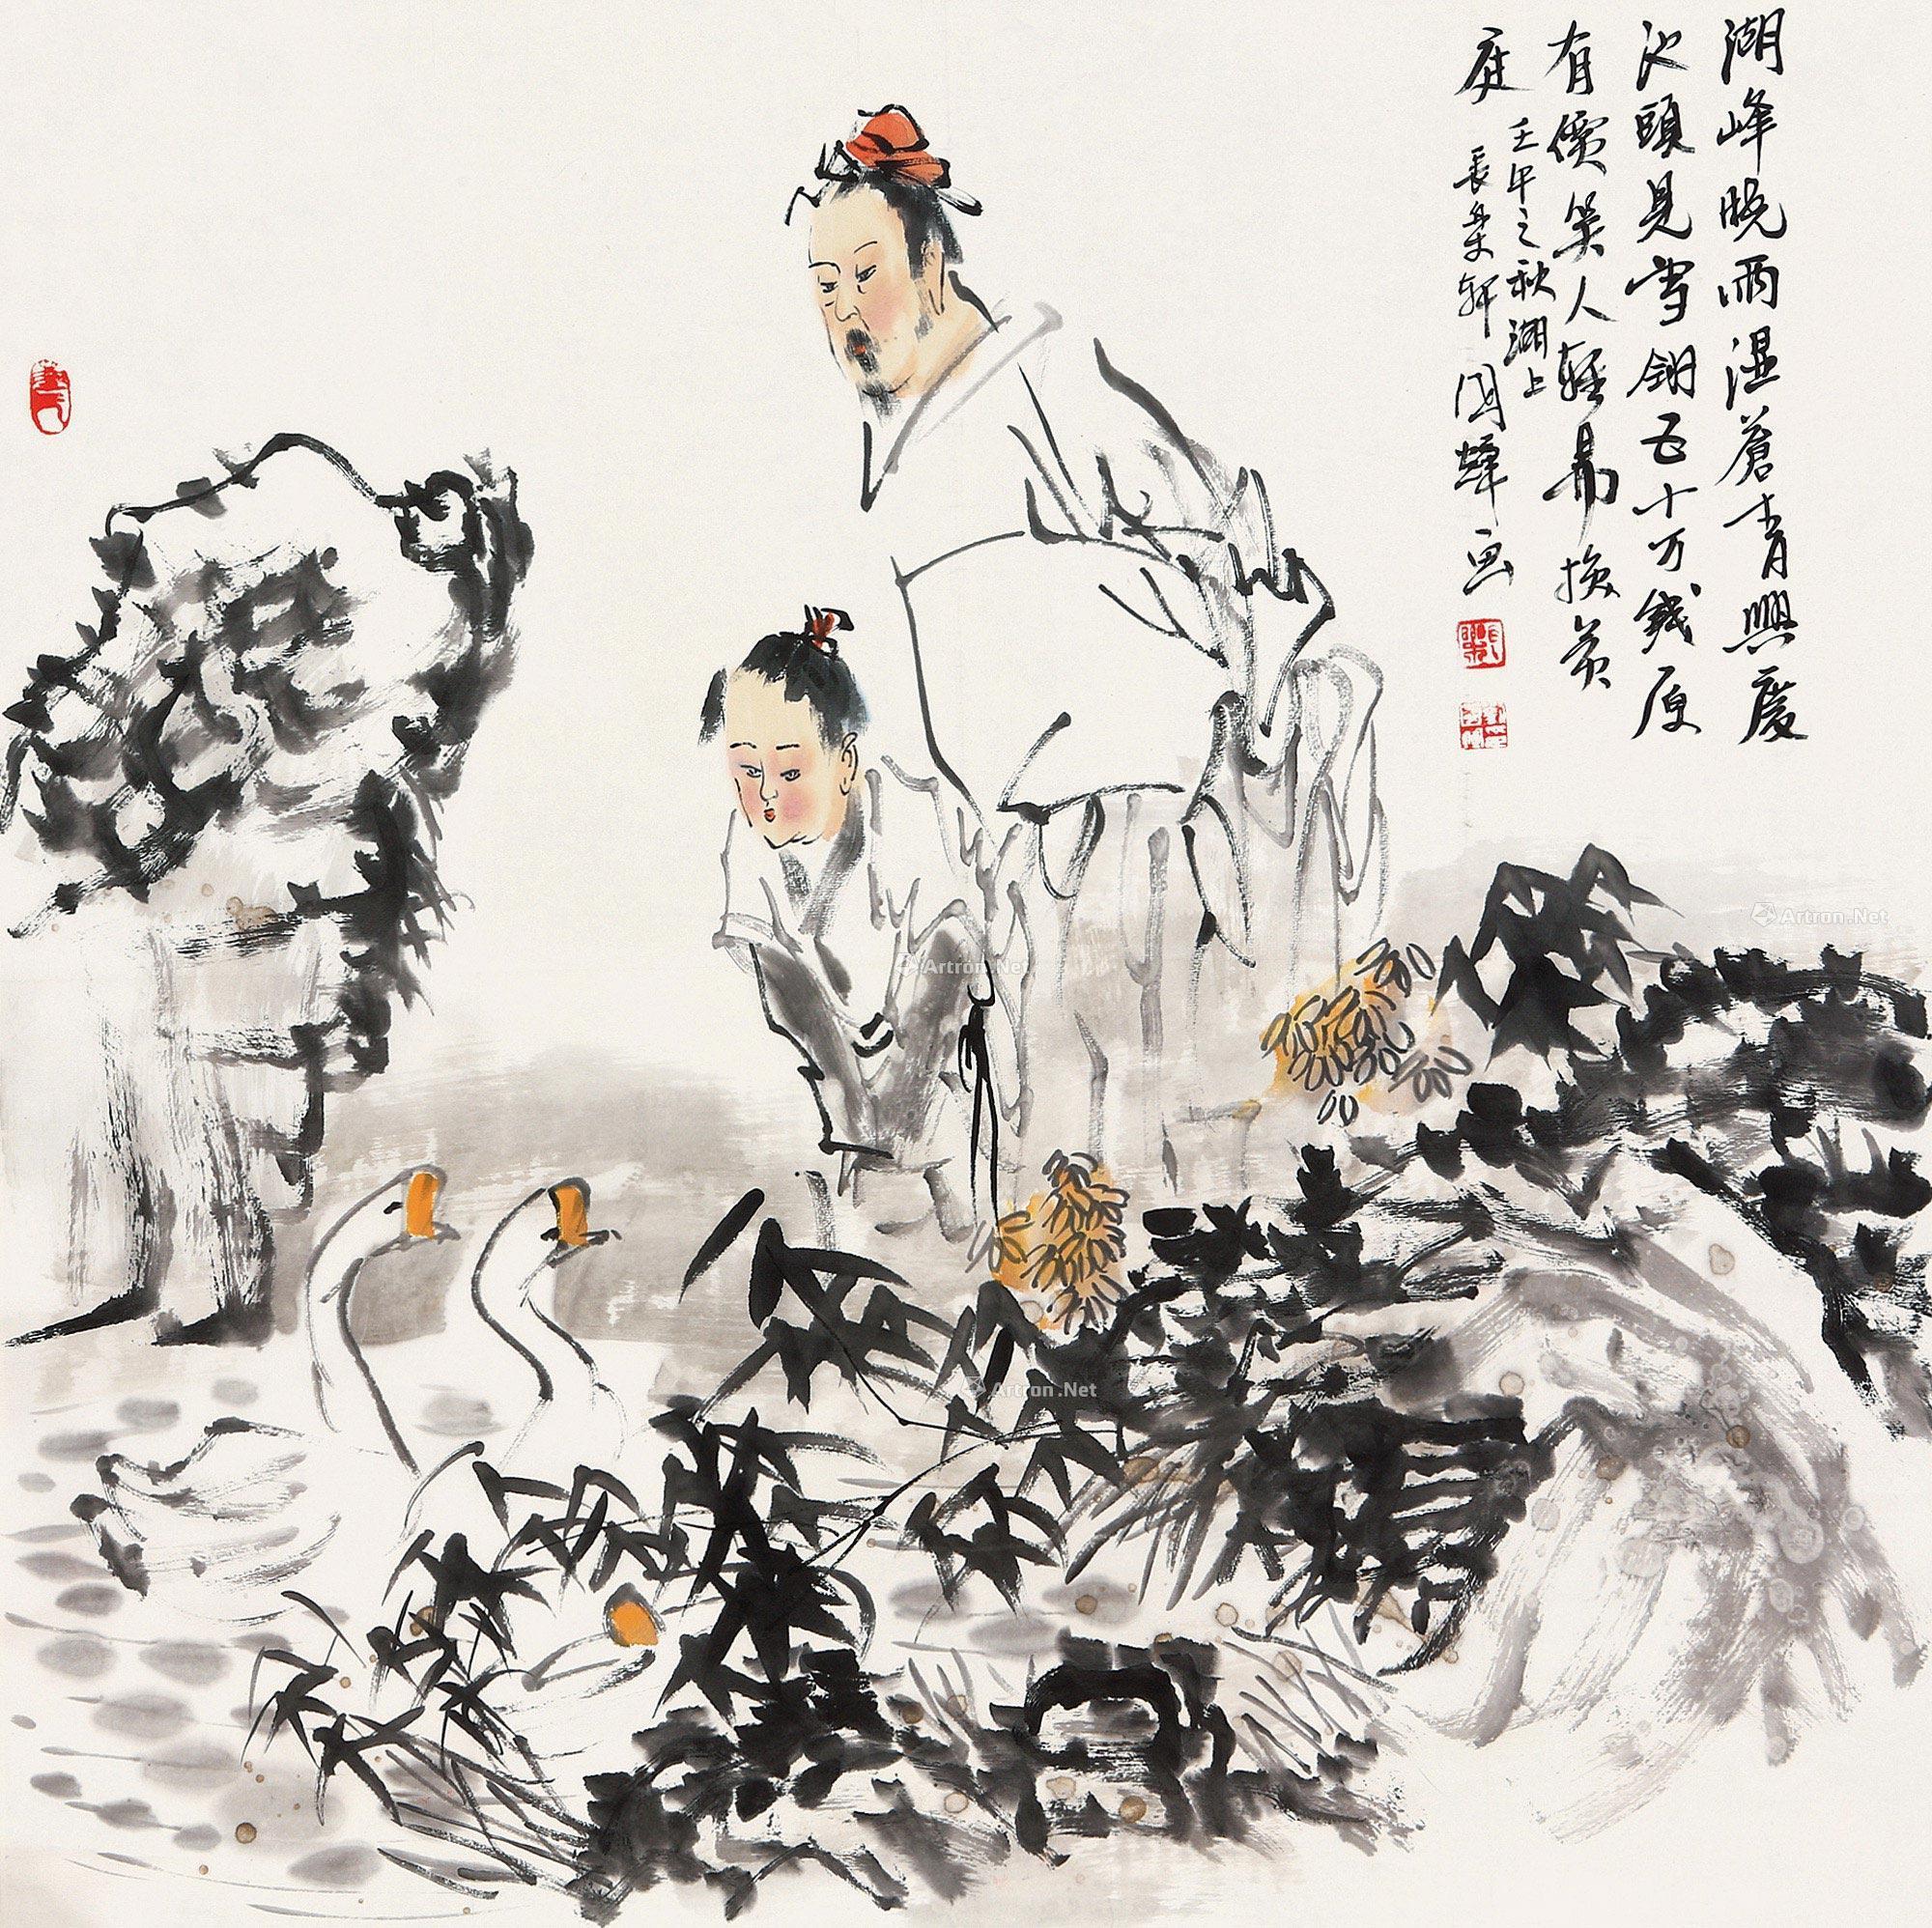 湖峰晓雨湿蒼青興慶
池頭見雪翎五十万錢原
有價笑人輕易換黄
庭
壬午之秋湖上
長軒国輝画
Artron.Net
Artron.Net
Artron.Net